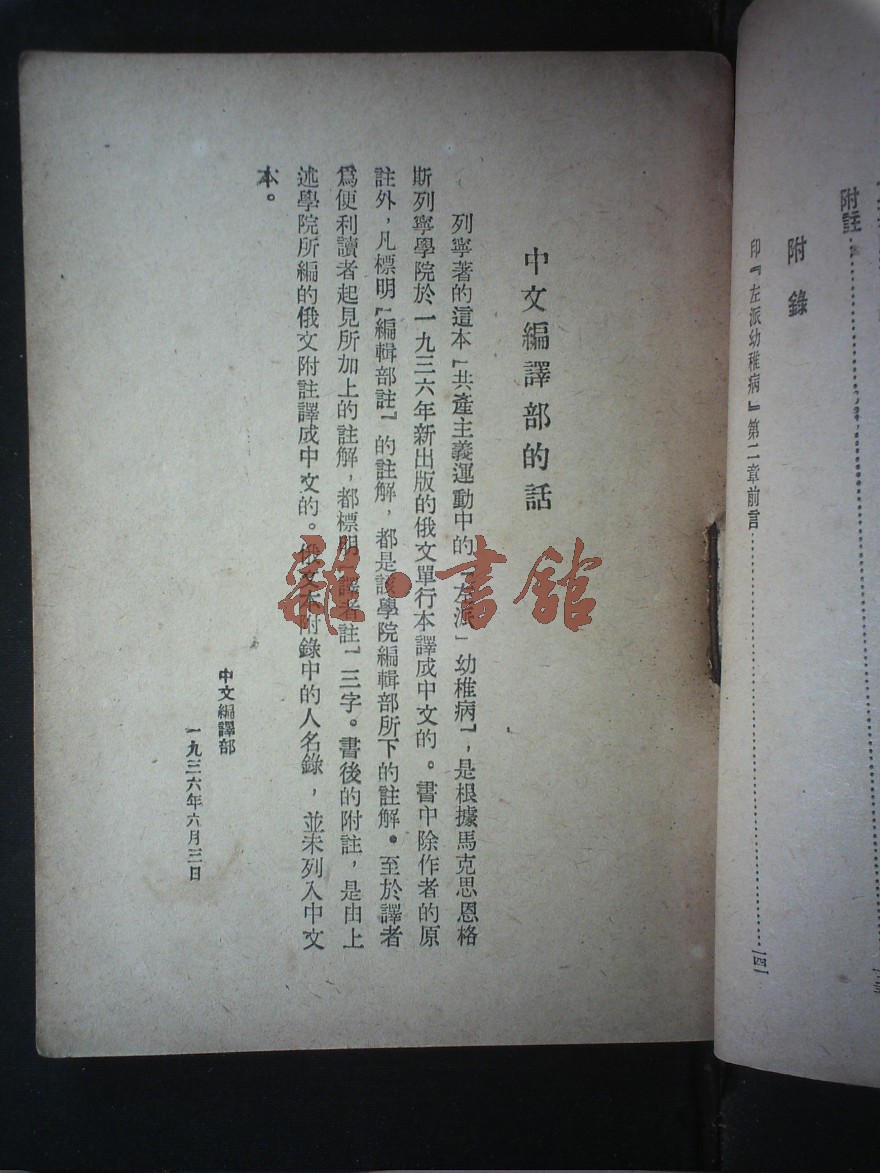 附註
附錄
印『左派幼稚病』第二章前言 一四一
中文編譯部的話
列寧著的這本『共產主義運動中的「左派」幼稚病』，是根據馬克思恩格
斯列寧學院於一九三六年新出版的俄文單行本譯成中文的。書中除作者的原
註外，凡標明『編輯部註』的註解，都是該學院編輯部所下的註解。至於譯者
爲便利讀者起見所加上的註解，都標明『譯者註』三字。書後的附註，是由上
述學院所編的俄文附註譯成中文的。俄文本附錄中的人名錄，並未列入中文
本。
中文編譯部
一九三六年六月三日
雜·書館